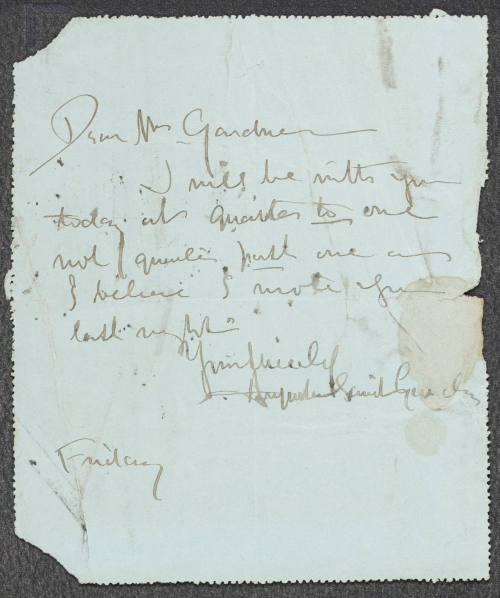 Dear Mrs Gardner
I will be with you
today at quarter to one
not quarter past one as
I believe I wrote you
last night
Yours sincerely
Augustus Saint Gaudens
Friday